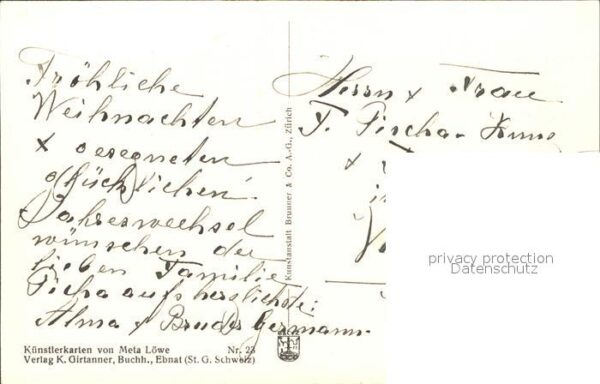 Fröhliche
Weihnachten
x gesegneten
glücklichen
Jahreswechsel
wünschen der
lieben Familie
Pischa aufs herzlichste:
Alma x Bruder Germann.
Künstlerkarten von Meta Löwe Nr. 23
Verlag K. Girtanner, Buchh., Ebnat (St. G. Schweiz)
Kunstanstalt Brunner & Co. A.-G., Zürich
Herrn x Frau
T. Pischa-
x
privacy protection
Datenschutz